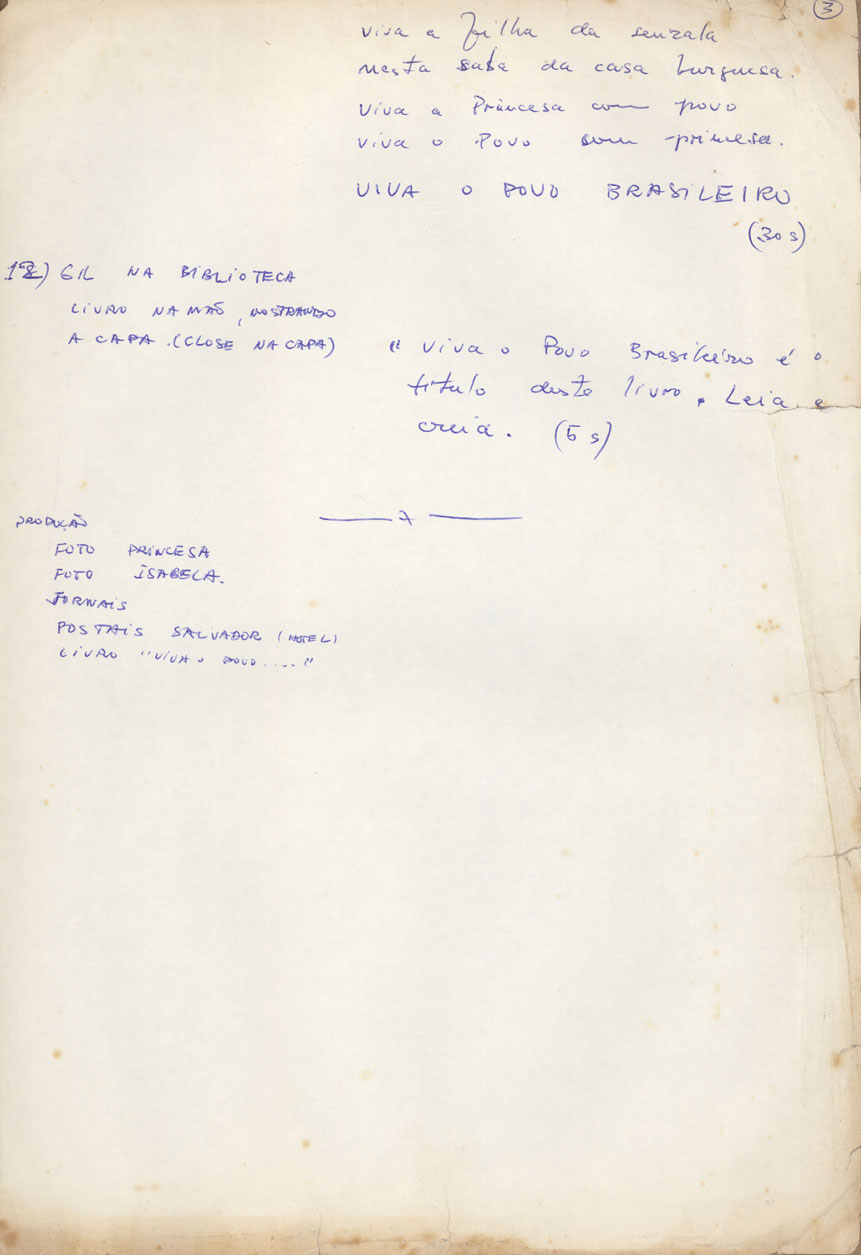 3
viva a filha da senzala
nesta sala da casa burguesa.
viva a Princesa com povo
viva o Povo com princesa.
VIVA O POVO BRASILEIRO
(30 s)
12) GIL NA BIBLIOTECA
LIVRO NA MÃO, MOSTRANDO
A CAPA. (CLOSE NA CAPA)
" Viva o Povo Brasileiro é o
título deste livro. Leia e
creia. (5 s)
PRODUÇÃO
FOTO PRINCESA
FOTO ISABELA.
JORNAIS
POSTAIS SALVADOR (HOTEL)
LIVRO "VIVA O POVO...."